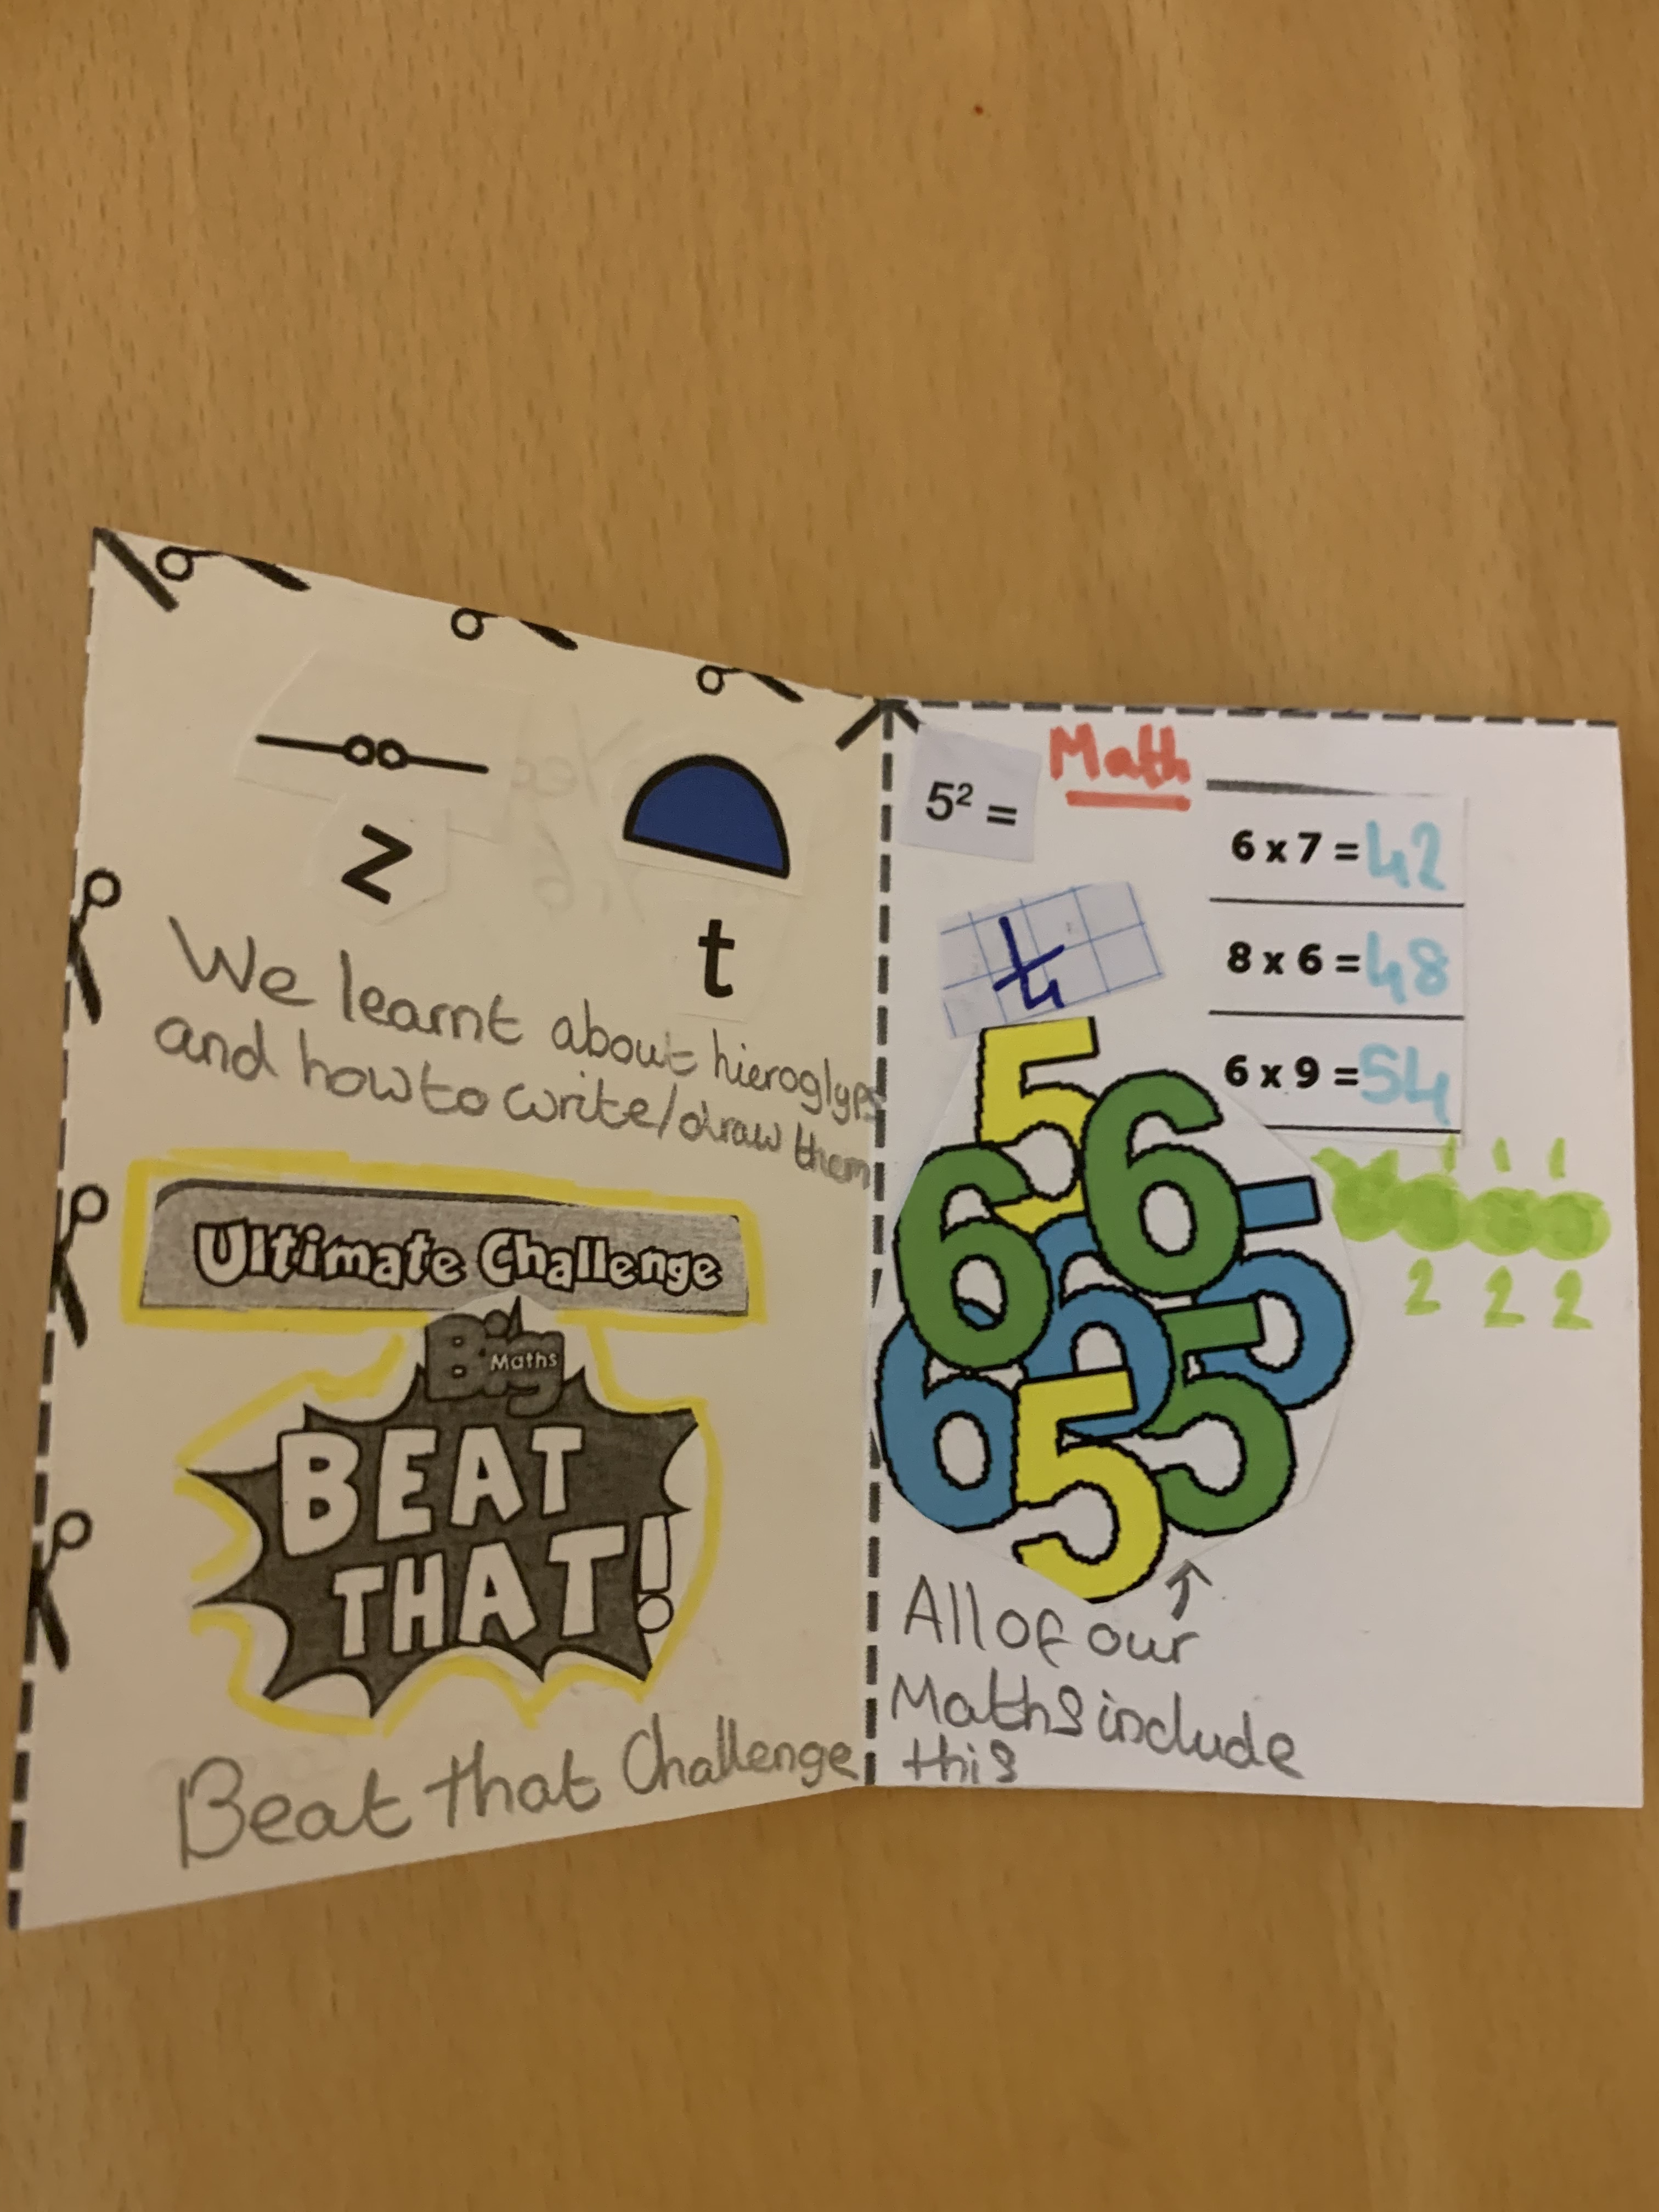 z
t
We learnt about hieroglyps
and how to write/draw them
Ultimate Challenge
Big
Maths
BEAT
THAT!
Beat that Challenge
Math
5² =
6 x 7 = 42
8 x 6 = 48
6 x 9 = 54
1/4
5 6
6 5
6 5
6 5 5
1 1 1
2 2 2
All of our
Maths include
this